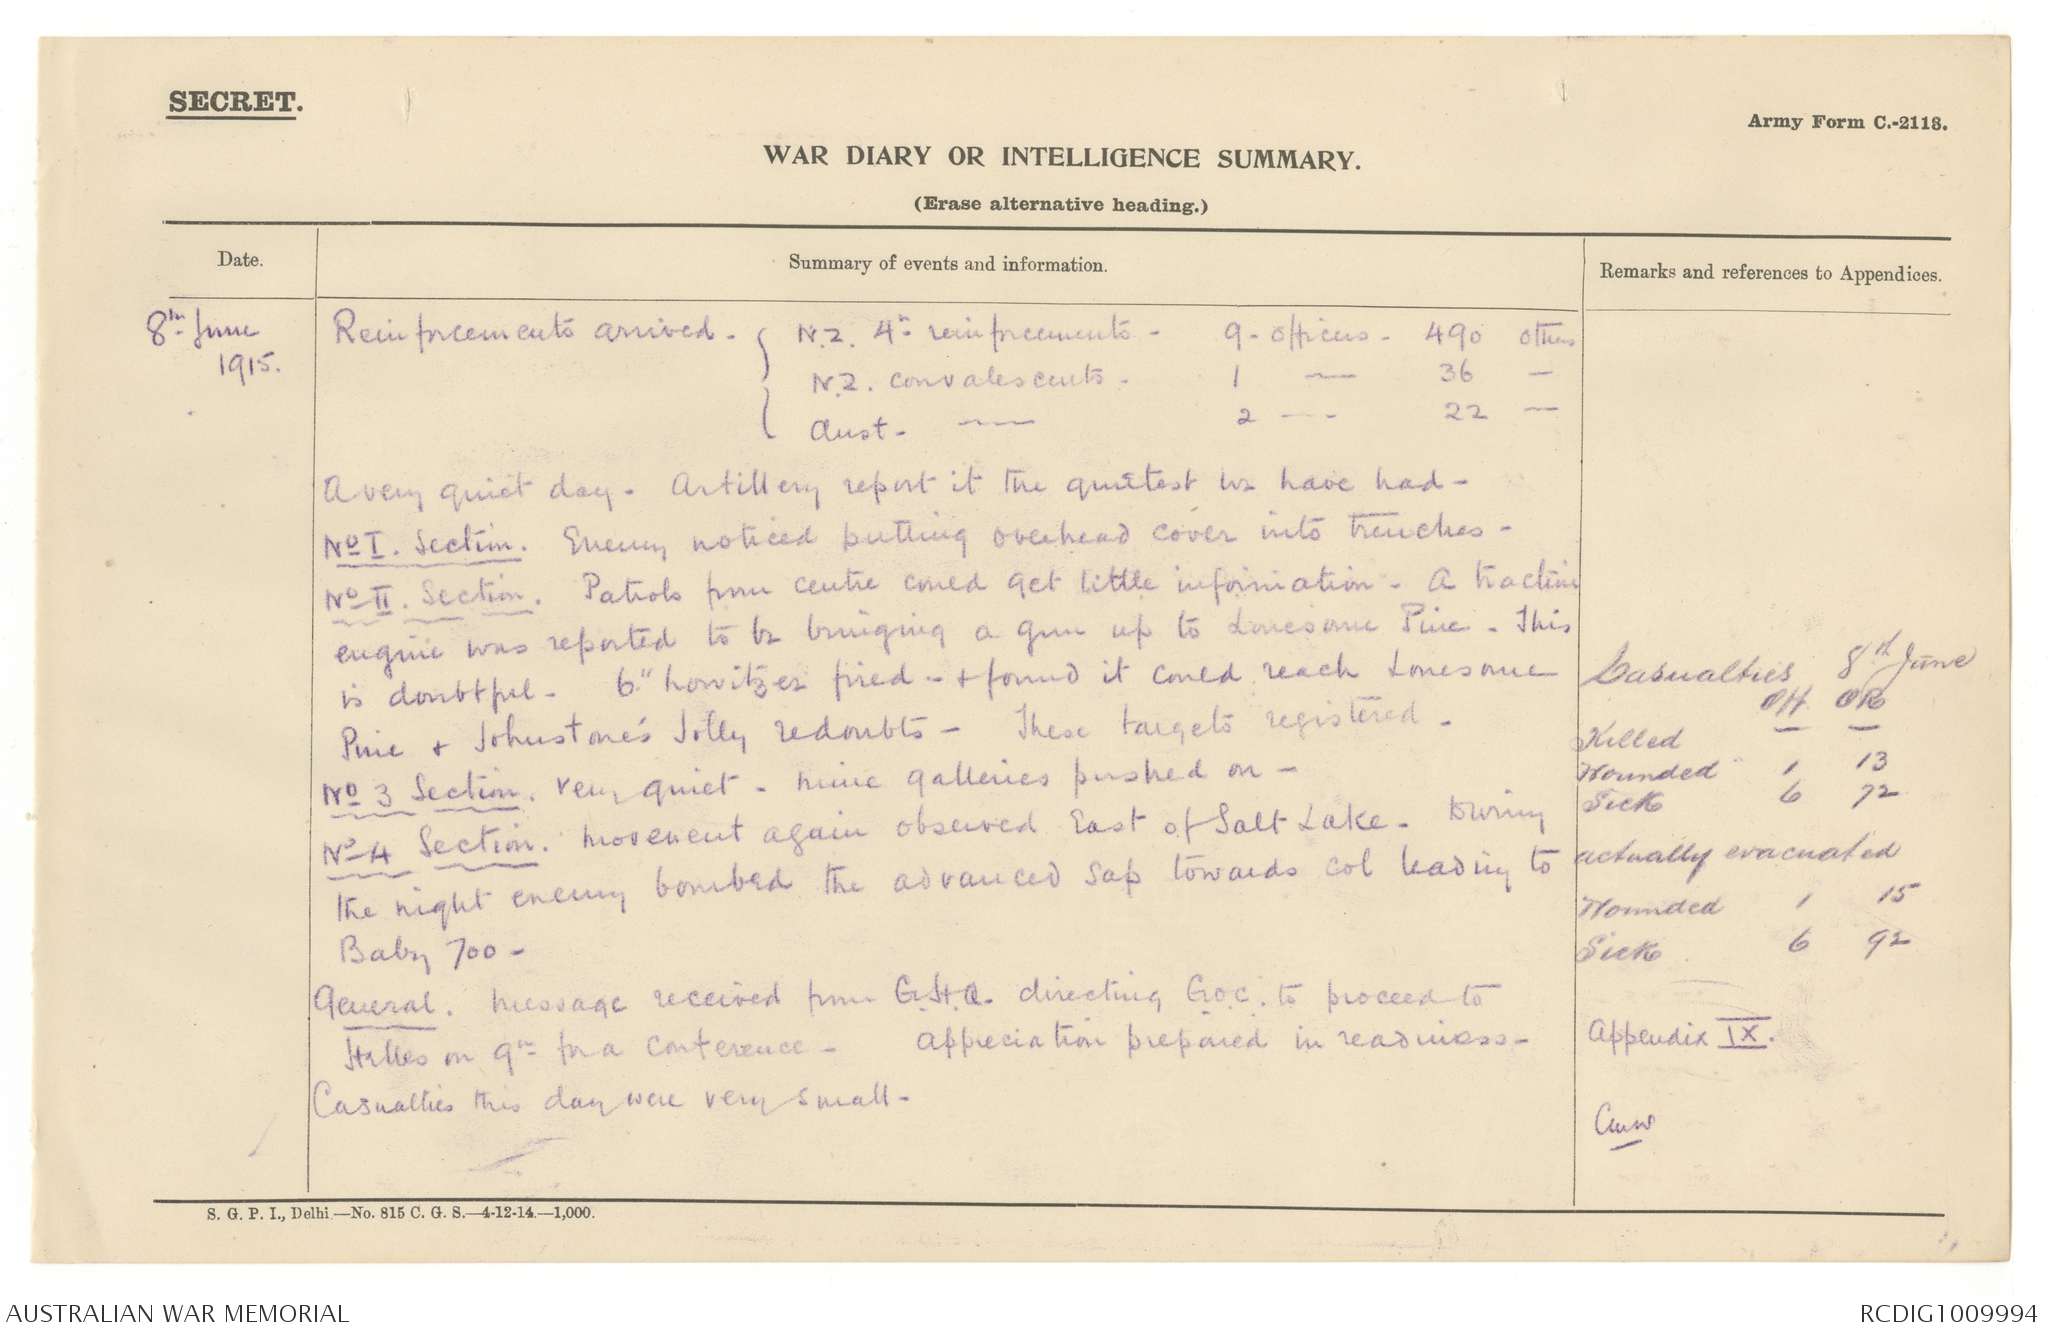 SECRET.
Army Form C.-2118.
WAR DIARY OR INTELLIGENCE SUMMARY.
(Erase alternative heading.)
Date.
Summary of events and information.
Remarks and references to Appendices.
8th June
1915.
Reinforcements arrived - N.Z. 4th reinforcements - 9 - officers - 490 others
N.Z. convalescents - 1 — 36 —
Aust - — 2 — 22 —
A very quiet day - Artillery report it the quietest we have had -
No I. Section. Enemy noticed putting overhead cover into trenches -
No II. Section. Patrols from centre could get little information - A traction
engine was reported to be bringing a gun up to Lonesome Pine - This
is doubtful - 6" howitzer fired - & found it could reach Lonesome
Pine & Johnstone's Jolly redoubts - These targets registered -
No 3 Section. very quiet - mine galleries pushed on -
No 4 Section. movement again observed East of Salt Lake - During
the night enemy bombed the advanced sap towards col leading to
Baby 700 -
General. Message received from G.H.Q. directing G.O.C. to proceed to
Helles on 9th for a conference - Appreciation prepared in readiness -
Casualties this day were very small -
Casualties 8th June
Off OR
Killed — —
Wounded 1 13
Sick 6 72
actually evacuated
Wounded 1 15
Sick 6 92
Appendix IX.
S. G. P. I., Delhi—No. 815 C. G. S.—4-12-14—1,000.
AUSTRALIAN WAR MEMORIAL
RCDIG1009994